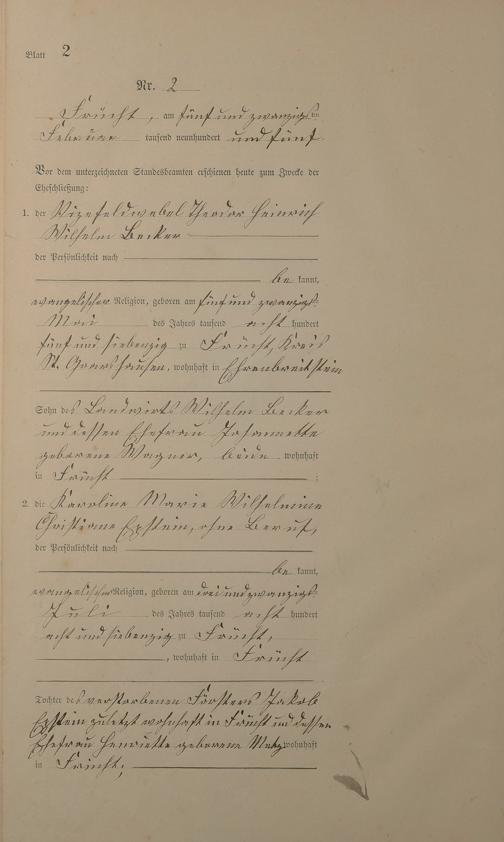 Blatt 2
Nr. 2
Frücht, am fünf und zwanzigsten
Februar tausend neunhundert und fünf
Vor dem unterzeichneten Standesbeamten erschienen heute zum Zwecke der
Eheschließung:
1. der Vizefeldwebel Theodor Heinrich
Wilhelm Becker
der Persönlichkeit nach
be kannt,
evangelischer Religion, geboren am fünf und zwanzigst
Mai des Jahres tausend acht hundert
fünf und siebenzig zu Frücht, Kreis
St. Goarshausen, wohnhaft in Ehrenbreitstein
Sohn des Landwirts Wilhelm Becker
und dessen Ehefrau Johannette
geborene Wagner, beide wohnhaft
in Frücht ;
2. die Karoline Marie Wilhelmine
Christiane Epstein, ohne Beruf,
der Persönlichkeit nach
be kannt,
evangelischer Religion, geboren am drei und zwanzigst
Juli des Jahres tausend acht hundert
acht und siebenzig zu Frücht,
, wohnhaft in Frücht
Tochter des verstorbenen Försters Jakob
Epstein zuletzt wohnhaft in Frücht und dessen
Ehefrau Henriette geborene Metz wohnhaft
in Frücht,